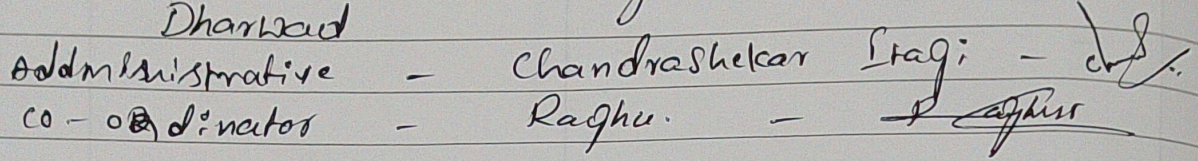 Dharwad
Addministrative - Chandrashekar Iragi -
co-ordinator - Raghu. - Raghu